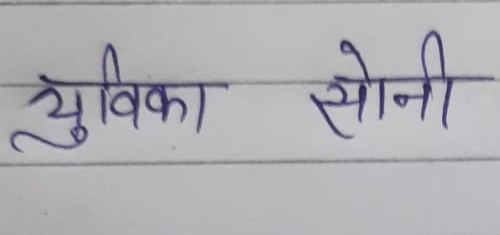 युविका सोनी